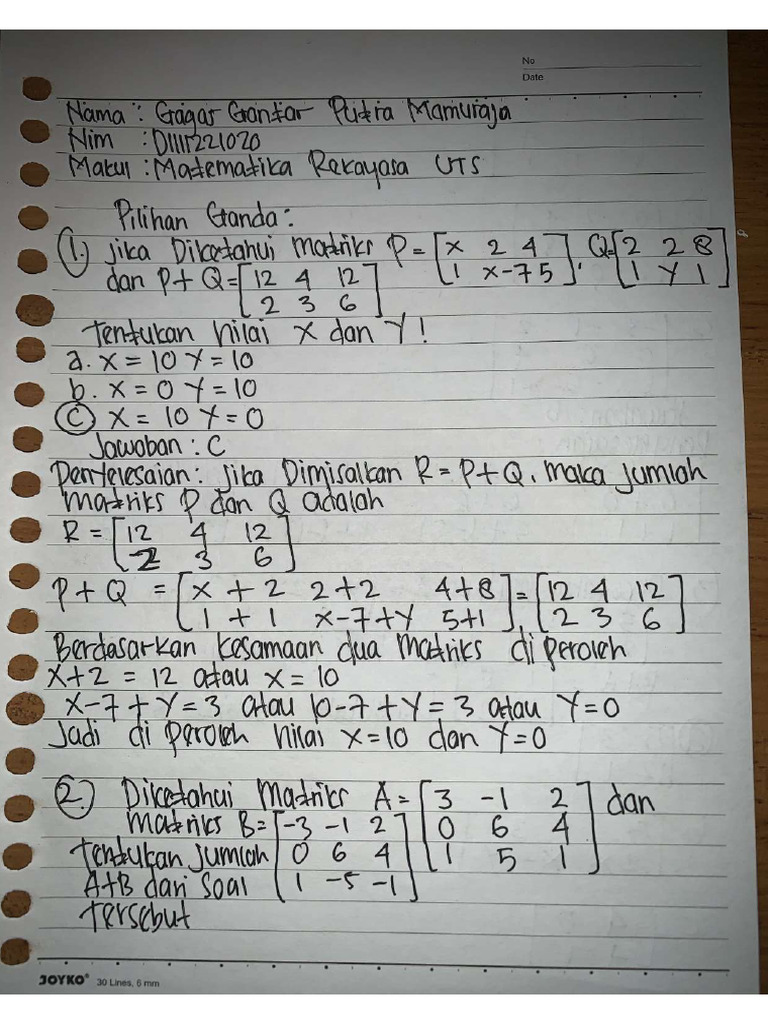 No
Date
Nama : Gagar Gantar Putra Mamuraja
Nim : D1111221020
Makul : Matematika Rekayasa UTS
Pilihan Ganda:
1. Jika Diketahui Matriks P = [x 2 4], Q = [2 2 8]
dan P + Q = [12 4 12] [1 x-7 5] [1 y 1]
[2 3 6]
Tentukan nilai x dan y!
a. x = 10 y = 10
b. x = 0 y = 10
c x = 10 y = 0
Jawaban : C
Penyelesaian: Jika Dimisalkan R = P + Q. maka jumlah
matriks P dan Q adalah
R = [12 4 12]
[2 3 6]
P + Q = [x + 2 2 + 2 4 + 8] = [12 4 12]
[1 + 1 x-7+y 5+1], [2 3 6]
Berdasarkan kesamaan dua matriks di peroleh
x + 2 = 12 atau x = 10
x - 7 + y = 3 atau 10 - 7 + y = 3 atau y = 0
Jadi di peroleh nilai x = 10 dan y = 0
2. Diketahui Matriks A = [3 -1 2] dan
Matriks B = [-3 -1 2] [0 6 4]
Tentukan jumlah [0 6 4] [1 5 1]
A+B dari soal [1 -5 -1]
tersebut
JOYKO® 30 Lines, 6 mm